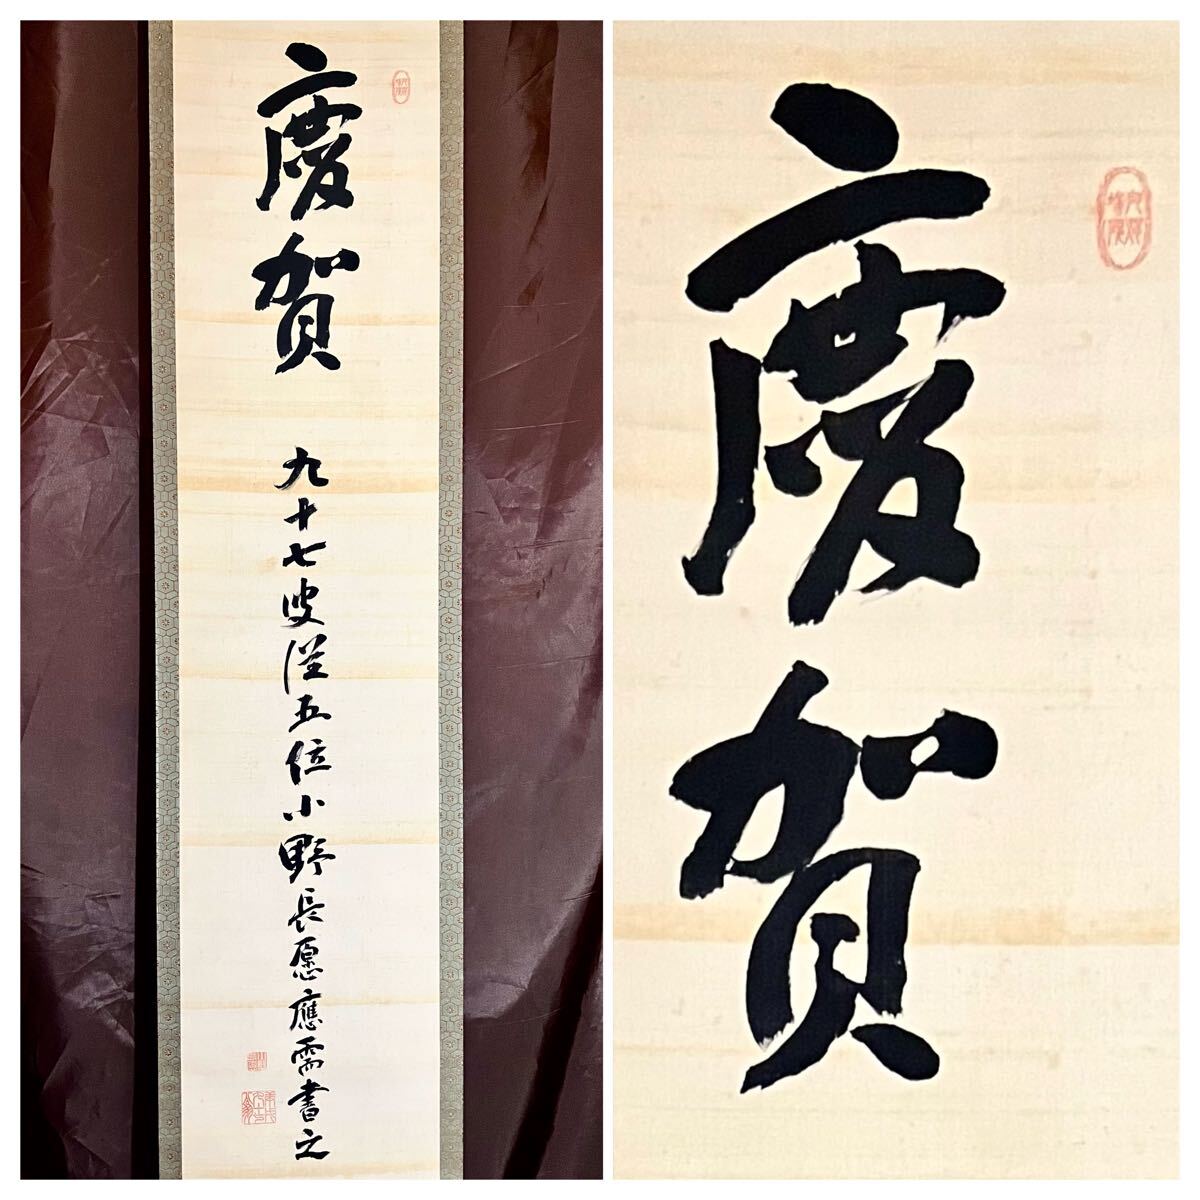 慶賀
九十七叟從五位小野長愿應需書之
慶賀